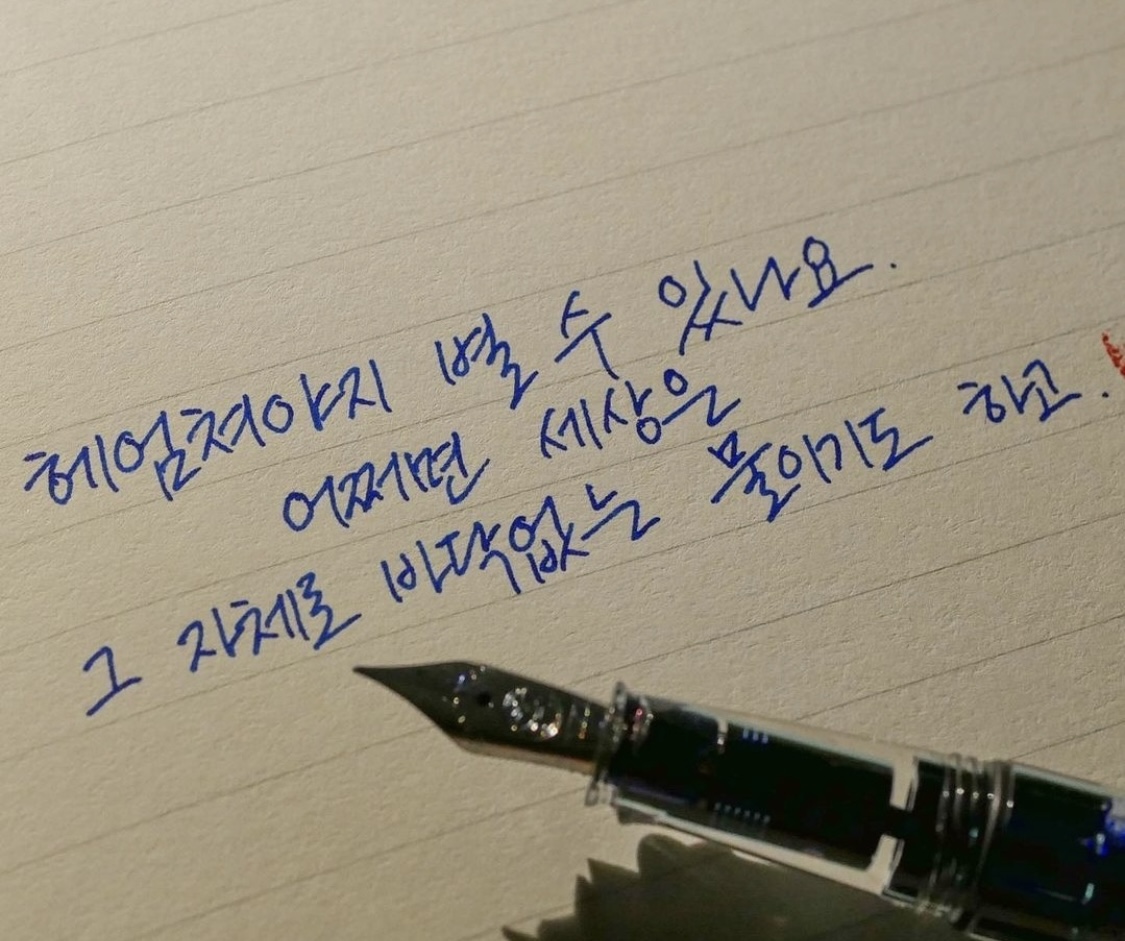 헤엄쳐야지 별 수 있나요.
어쩌면 세상은
그 자체로 바닥없는 물이기도 하고.